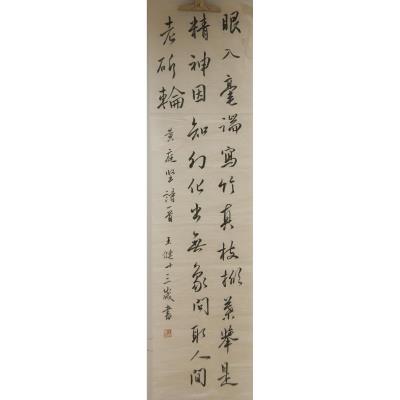 眼入毫端寫竹真枝掀葉舉是
精神因知幻化出無象問取人間
老斫輪
黄庭堅詩一首 王健十三歲書